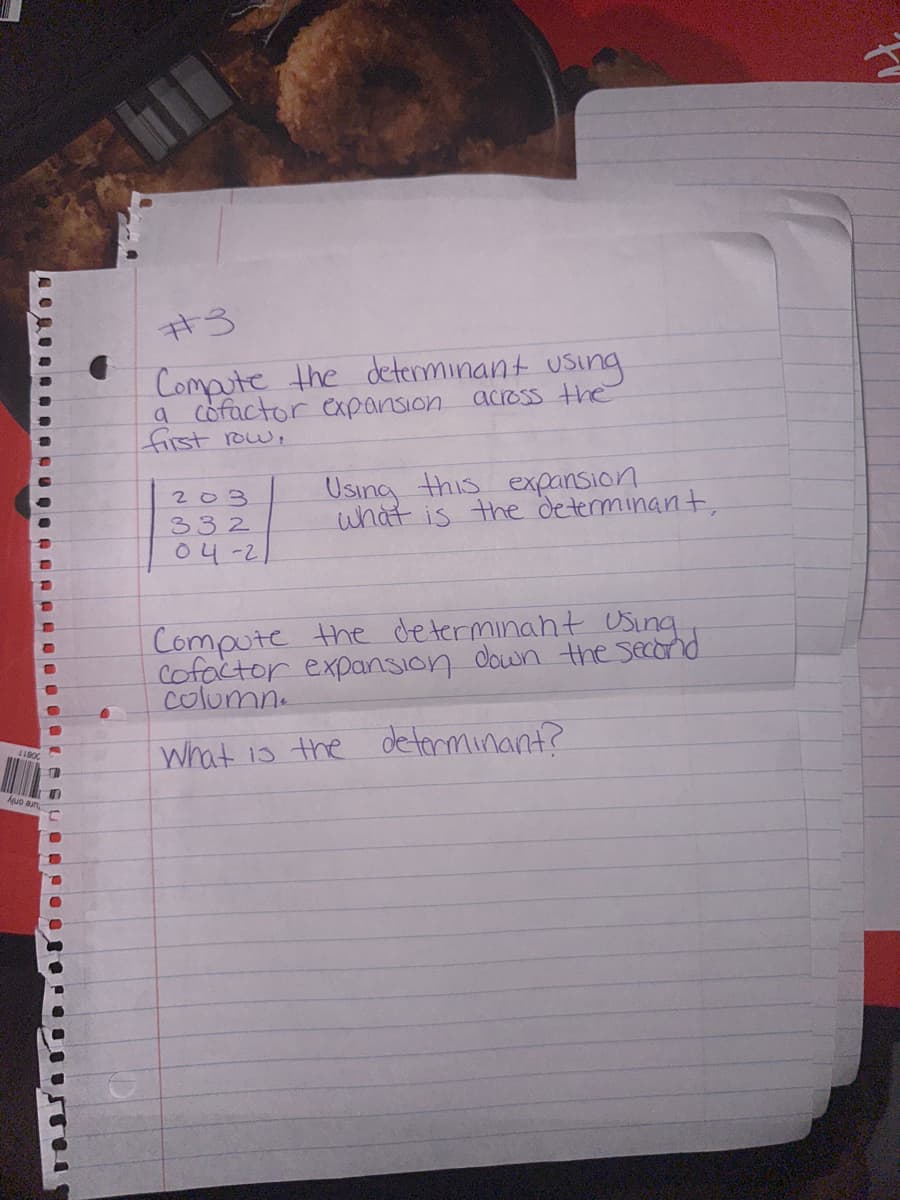 #3
Compute the determinant using
a cofactor expansion across the
first row.
2 0 3
3 3 2
0 4 -2
Using this expansion
what is the determinant.
Compute the determinant using
cofactor expansion down the second
column.
What is the determinant?